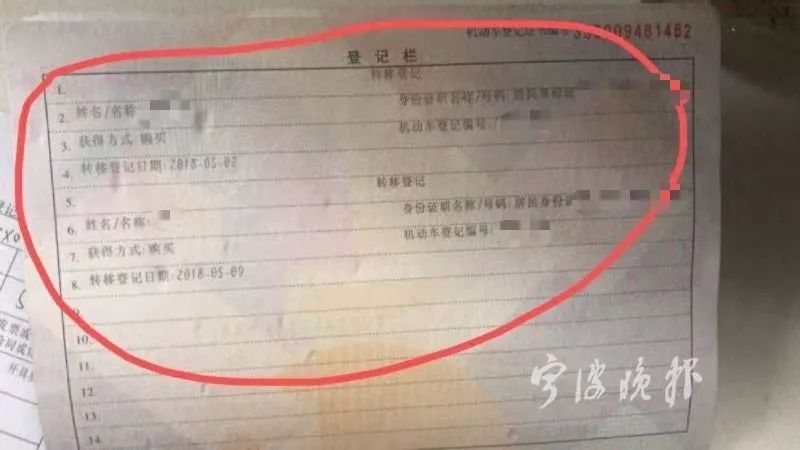 机动车登记证书编号
登记栏
1. 转移登记
2. 姓名/名称 身份证明名称/号码:居民身份证
3. 获得方式:购买 机动车登记编号:
4. 转移登记日期:2018-05-02
5. 转移登记
6. 姓名/名称: 身份证明名称/号码:居民身份证
7. 获得方式:购买 机动车登记编号:
8. 转移登记日期:2018-05-09
9.
10.
11.
12.
13.
14
宁波晚报